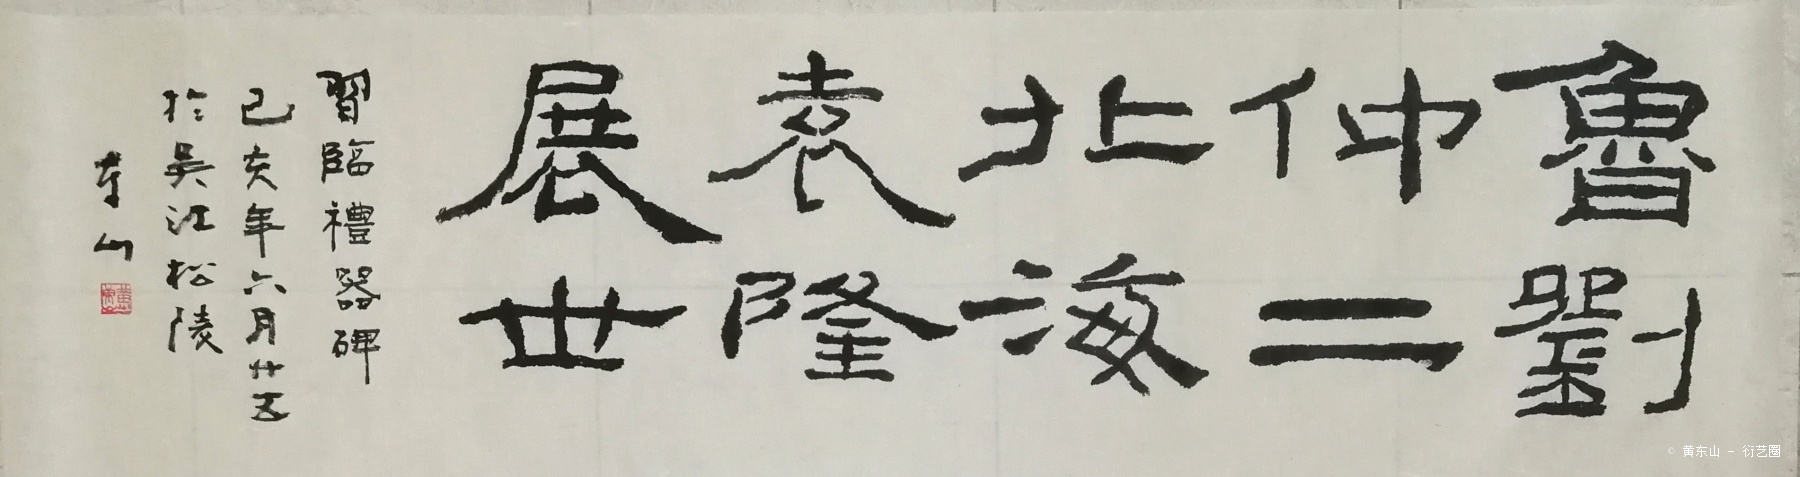 魯劉
仲二
北海
袁隆
展世
習臨禮器碑
己亥年六月廿五
於吴江松陵
东山
© 黄东山 - 衍艺圈